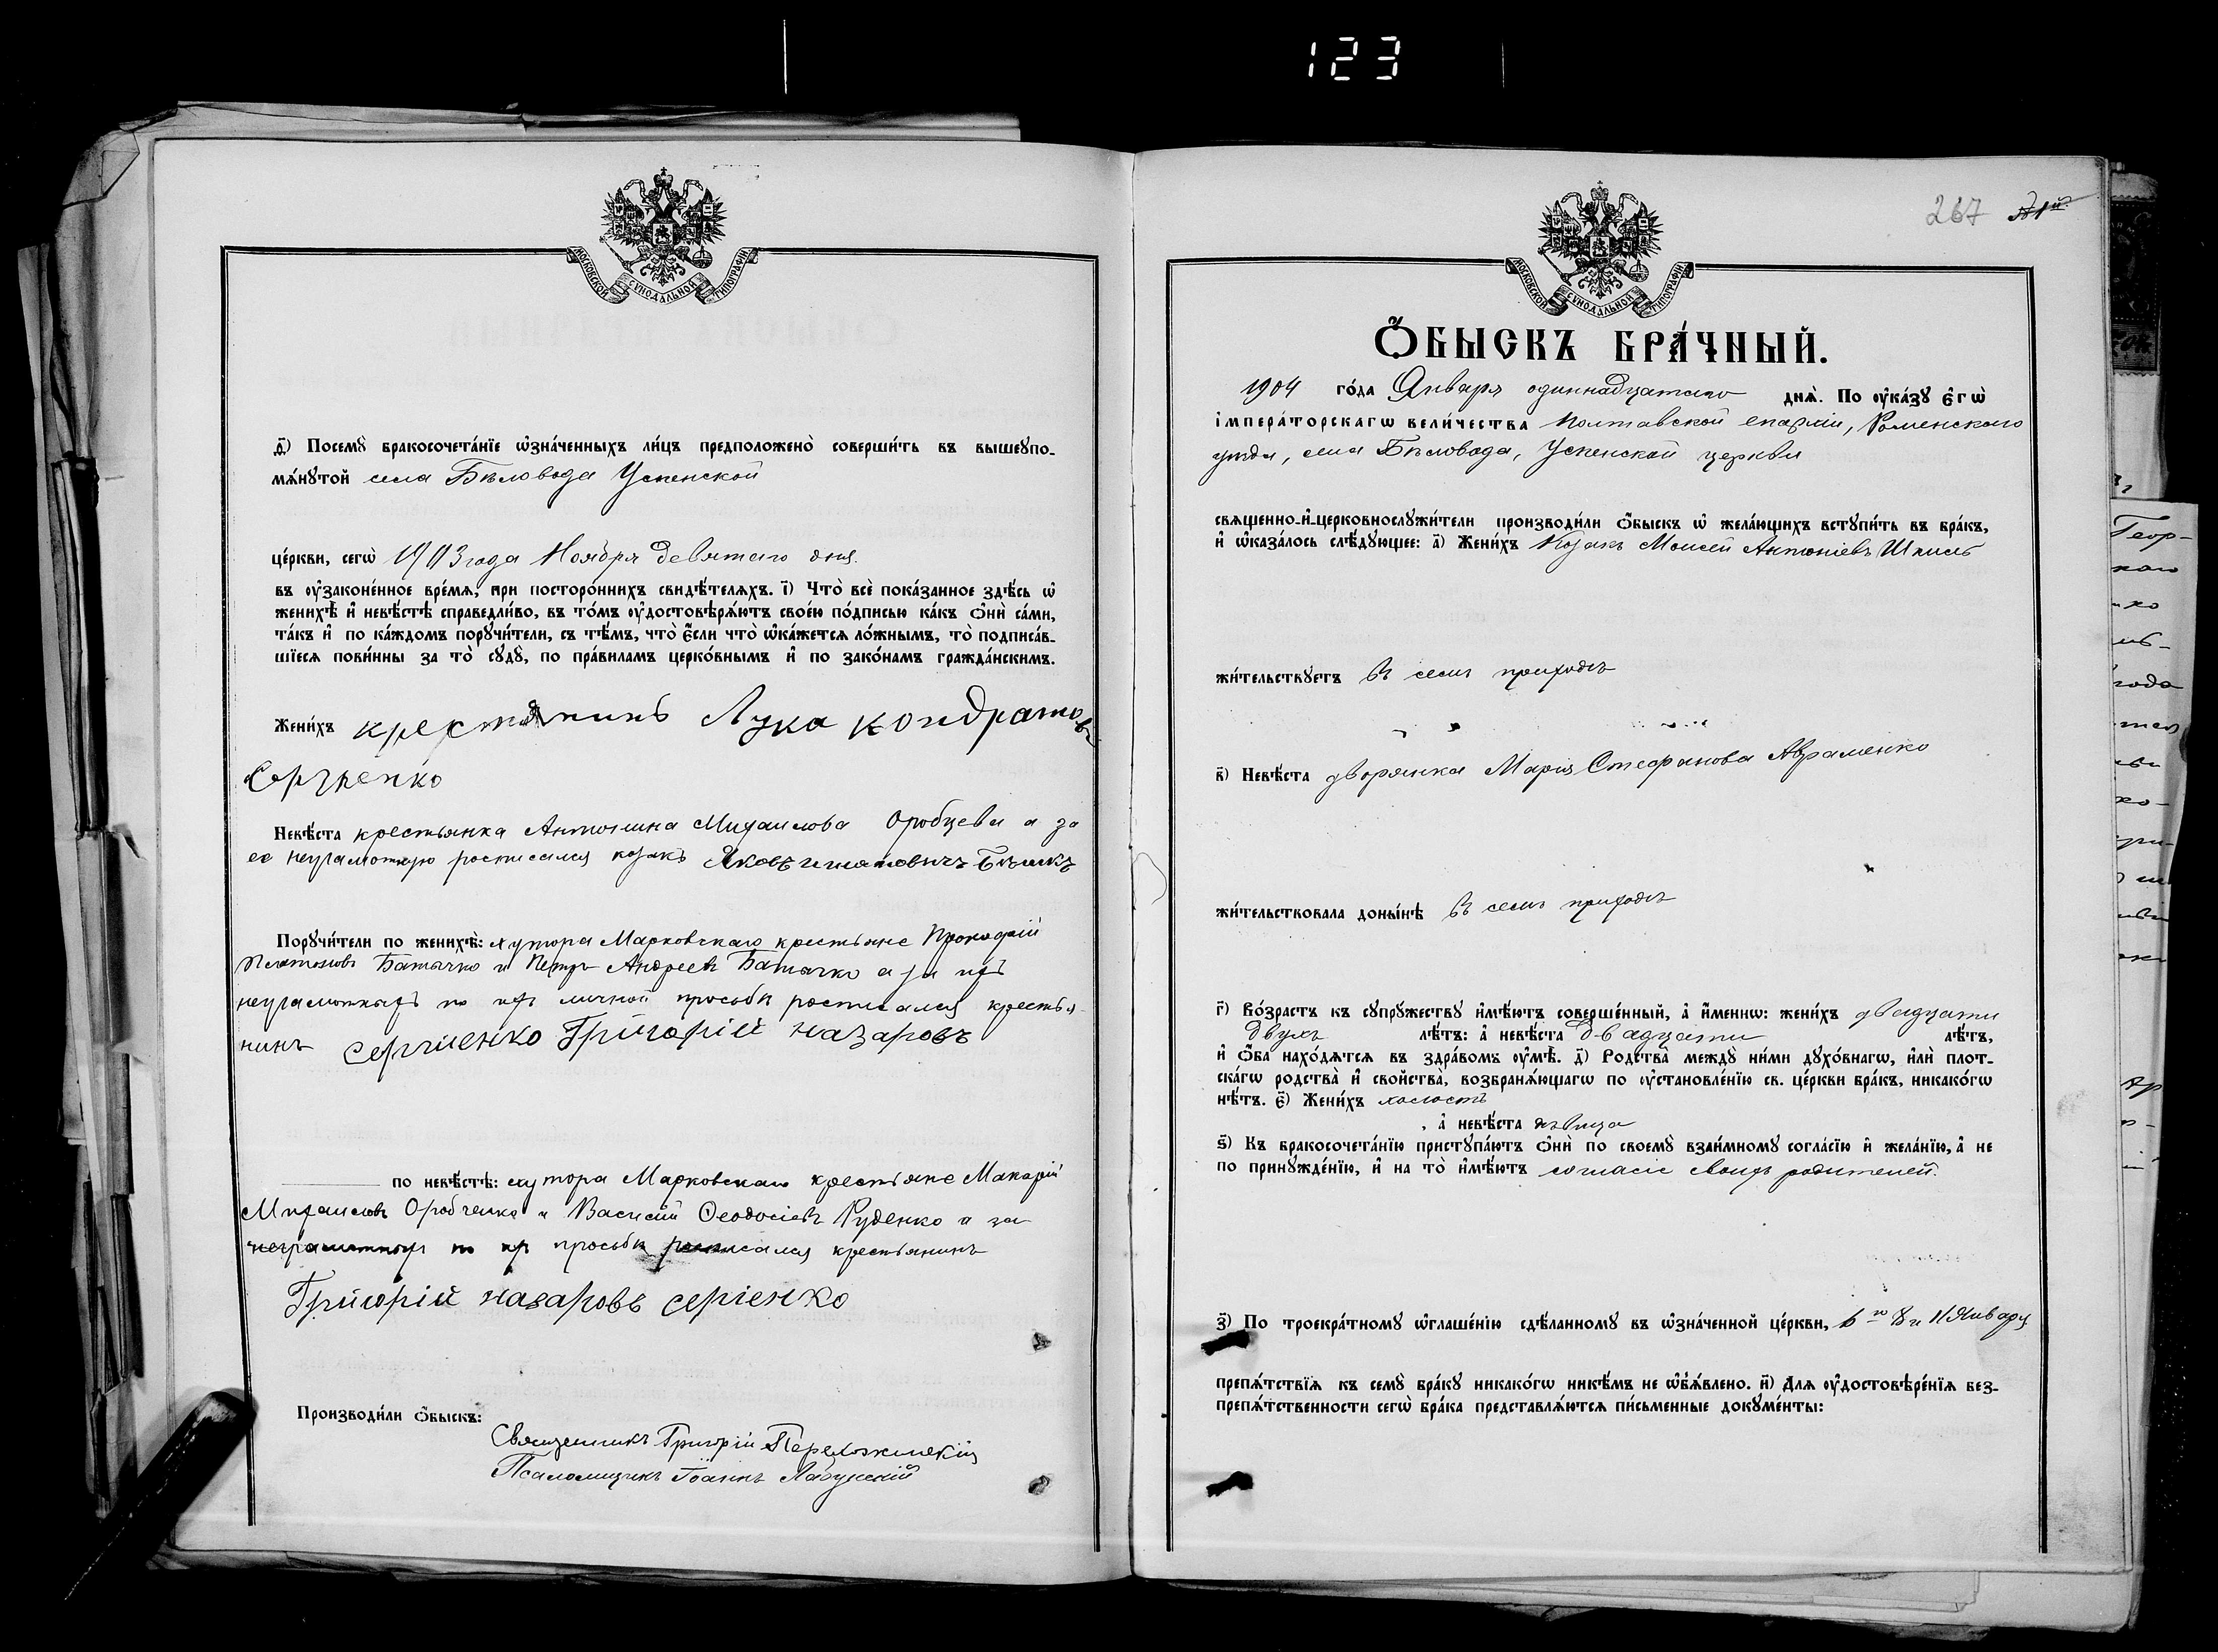 123
МОСКОВСКОЙ СУНОДАЛЬНОЙ ТИПОГРАФІИ
д҃) Посемꙋ̀ бракосочета́нїе ѡ҆зна́ченныхъ ли́цъ предположено̀ соверши́ть въ вышеꙋпо-
мѧ́нꙋтой села Бѣловода Успенской
це́ркви, сегѡ̀ 1903 года Ноября девятаго дня.
въ ᲂу҆законе́нное вре́мѧ, при посторо́ннихъ свидѣ́телѧхъ. і҃) Что̀ всѐ пока́занное здѣ́сь ѡ҆
женихѣ̀ и҆ невѣ́стѣ справедли́во, въ то́мъ ᲂу҆достовѣрѧ́ютъ свое́ю по́дписью ка́къ Ѻ҆нѝ са́ми,
та́къ и҆ по ка́ждомъ порꙋчи́тели, съ тѣ́мъ, что̀ є҆́сли что̀ ѡ҆ка́жетсѧ ло́жнымъ, то̀ подписа́в-
шїесѧ пови́нны за то̀ сꙋдꙋ̀, по пра́виламъ церко́внымъ и҆ по зако́намъ гражда́нскимъ.
Жени́хъ крестянинъ Лука Кондратовъ
Сергіенко
Невѣ́ста крестьянка Антонина Михаилова Оробцева а за
ее неграмотную росписался козакъ Яковъ Игнатовичъ Бѣликъ
Порꙋчи́тели по женихѣ̀: хутора Марковскаго крестьяне Прокофій
Платоновъ Батачко и Петръ Андреевъ Батачко а за ихъ
неграмотныхъ по ихъ личной просьбѣ росписался крестья-
нинъ Сергіенко Григорій Назаровъ
по невѣ́стѣ: хутора Марковскаго крестьяне Макарій
Михаиловъ Оробченко и Василій Ѳеодосіевъ Руденко а за
неграмотных по их просьбѣ росписался крестьянинъ
Григорій Назаровъ Сергіенко
Производи́ли Ѻ҆́быскъ:
Священникъ Григорій
Псаломщикъ Іоаннъ
267
МОСКОВСКОЙ СУНОДАЛЬНОЙ ТИПОГРАФІИ
Ѻ҆́БЫСКЪ БРА́ЧНЫЙ.
1904 го́да Января одиннадцатаго днѧ̀. По ᲂу҆ка́зꙋ є҆гѡ̀
і҆мпера́торскагѡ вели́чества Полтавской епархіи, Роменскаго
уѣзда, села Бѣловода, Успенской церкви
свѧщенно-и҆-церковнослꙋжи́тели производи́ли Ѻ҆́быскъ ѡ҆ жела́ющихъ встꙋпи́ть въ бра́къ,
и҆ ѡ҆каза́лось слѣ́дꙋющее: а҃) Жени́хъ Козакъ Моисей Антоніевъ Шкиль
жи́тельствꙋетъ въ семъ приходѣ
в҃) Невѣ́ста дворянка Марія Стефанова Авраменко
жи́тельствовала доны́нѣ въ семъ приходѣ
г҃) Во́зрастъ къ сꙋпрꙋ́жествꙋ и҆мѣ́ютъ соверше́нный, а҆ и҆́меннѡ: жени́хъ двадцати
двухъ лѣ́тъ: а҆ невѣ́ста двадцати лѣ́тъ,
и҆ Ѻ҆́ба нахо́дѧтсѧ въ здра́вомъ ᲂу҆мѣ̀. д҃) Родства̀ междꙋ̀ ни́ми дꙋхо́внагѡ, и҆лѝ плот-
ска́гѡ родства̀ и҆ сво́йства, возбранѧ́ющагѡ по ᲂу҆становле́нїю св. це́ркви бра́къ, никако́гѡ
нѣ́тъ. є҃) Жени́хъ холостъ
, а҆ невѣ́ста дѣвица
ѕ҃) Къ бракосочета́нїю пристꙋпа́ютъ Ѻ҆нѝ по своемꙋ̀ взаи́мномꙋ согла́сїю и҆ жела́нїю, а҆ не
по принꙋжде́нїю, и҆ на то̀ и҆мѣ́ютъ согласіе своихъ родителей.
з҃) По троекра́тномꙋ ѡ҆глаше́нїю сдѣ́ланномꙋ въ ѡ҆зна́ченной це́ркви, 6го 8 и 11 Января
препѧ́тствїѧ къ семꙋ̀ бра́кꙋ никако́гѡ никѣ́мъ не ѡ҆б̾ѧ́влено. и҃) Длѧ ᲂу҆достовѣре́нїѧ без-
препѧ́тственности сегѡ̀ бра́ка представлѧ́ютсѧ пи́сьменные докꙋме́нты: